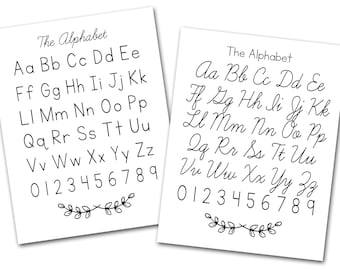 The Alphabet
Aa Bb Cc Dd Ee
Ff Gg Hh Ii Jj Kk
Ll Mm Nn Oo Pp
Qq Rr Ss Tt Uu
Vv Ww Xx Yy Zz
0123456789
The Alphabet
Aa Bb Cc Dd Ee
Ff Gg Hh Ii Jj Kk
Ll Mm Nn Oo Pp
Qq Rr Ss Tt Uu
Vv Ww Xx Yy Zz
0123456789